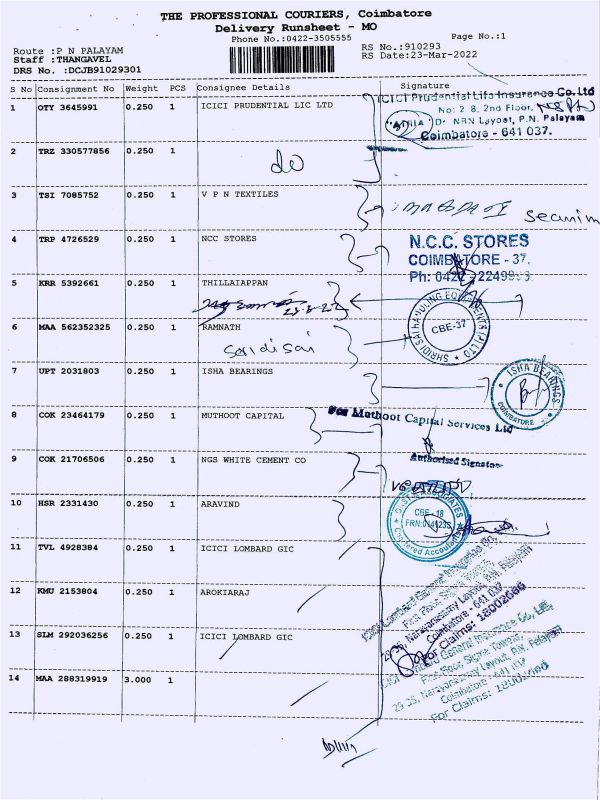 THE PROFESSIONAL COURIERS, Coimbatore
Delivery Runsheet - MO
Phone No.:0422-3505555
Page No.:1
Route :P N PALAYAM
Staff :THANGAVEL
DRS No. :DCJB91029301
RS No.:910293
RS Date:23-Mar-2022
S No Consignment No Weight PCS Consignee Details Signature
1 OTY 3645991 0.250 1 ICICI PRUDENTIAL LIC LTD
ICICI Prudential Life Insurance Co. Ltd
No: 2 8, 2nd Floor,
Dr NRN Layout, P.N. Palayam
Coimbatore - 641 037.
2 TRZ 330577856 0.250 1
do
3 TSI 7085752 0.250 1 V P N TEXTILES
4 TRP 4726529 0.250 1 NCC STORES
N.C.C. STORES
COIMBATORE - 37.
Ph: 0422 - 2249993
5 KRR 5392661 0.250 1 THILLAIAPPAN
6 MAA 562352325 0.250 1 RAMNATH
SHRIDI SAI HANDLING EQUIPMENTS (P) LTD
CBE-37
7 UPT 2031803 0.250 1 ISHA BEARINGS
ISHA BEARINGS
COIMBATORE
8 COK 23464179 0.250 1 MUTHOOT CAPITAL
For Muthoot Capital Services Ltd
Authorised Signatory
9 COK 21706506 0.250 1 NGS WHITE CEMENT CO
10 HSR 2331430 0.250 1 ARAVIND
ASSOCIATES
CBE - 18
Chartered Accountants
11 TVL 4928384 0.250 1 ICICI LOMBARD GIC
12 KMU 2153804 0.250 1 AROKIARAJ
ICICI Lombard General Insurance Co, Ltd,
First Floor, Sigma Towers,
29 35, Narayanasamy Layout, P.N. Palayam
Coimbatore - 641 037
For Claims: 18002666
13 SLM 292036256 0.250 1 ICICI LOMBARD GIC
ICICI General Insurance Co, Ltd,
First Floor, Sigma Towers,
29 35, Narayanasamy Layout, P.N. Palayam
Coimbatore - 641 037
For Claims:
14 MAA 288319919 3.000 1